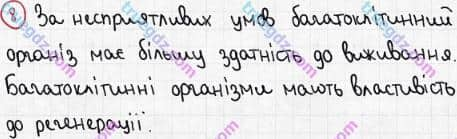 8 За несприятливих умов багатоклітинний
організ має більшу здатність до виживання.
Багатоклітинні організми мають властивість
до регенерації.